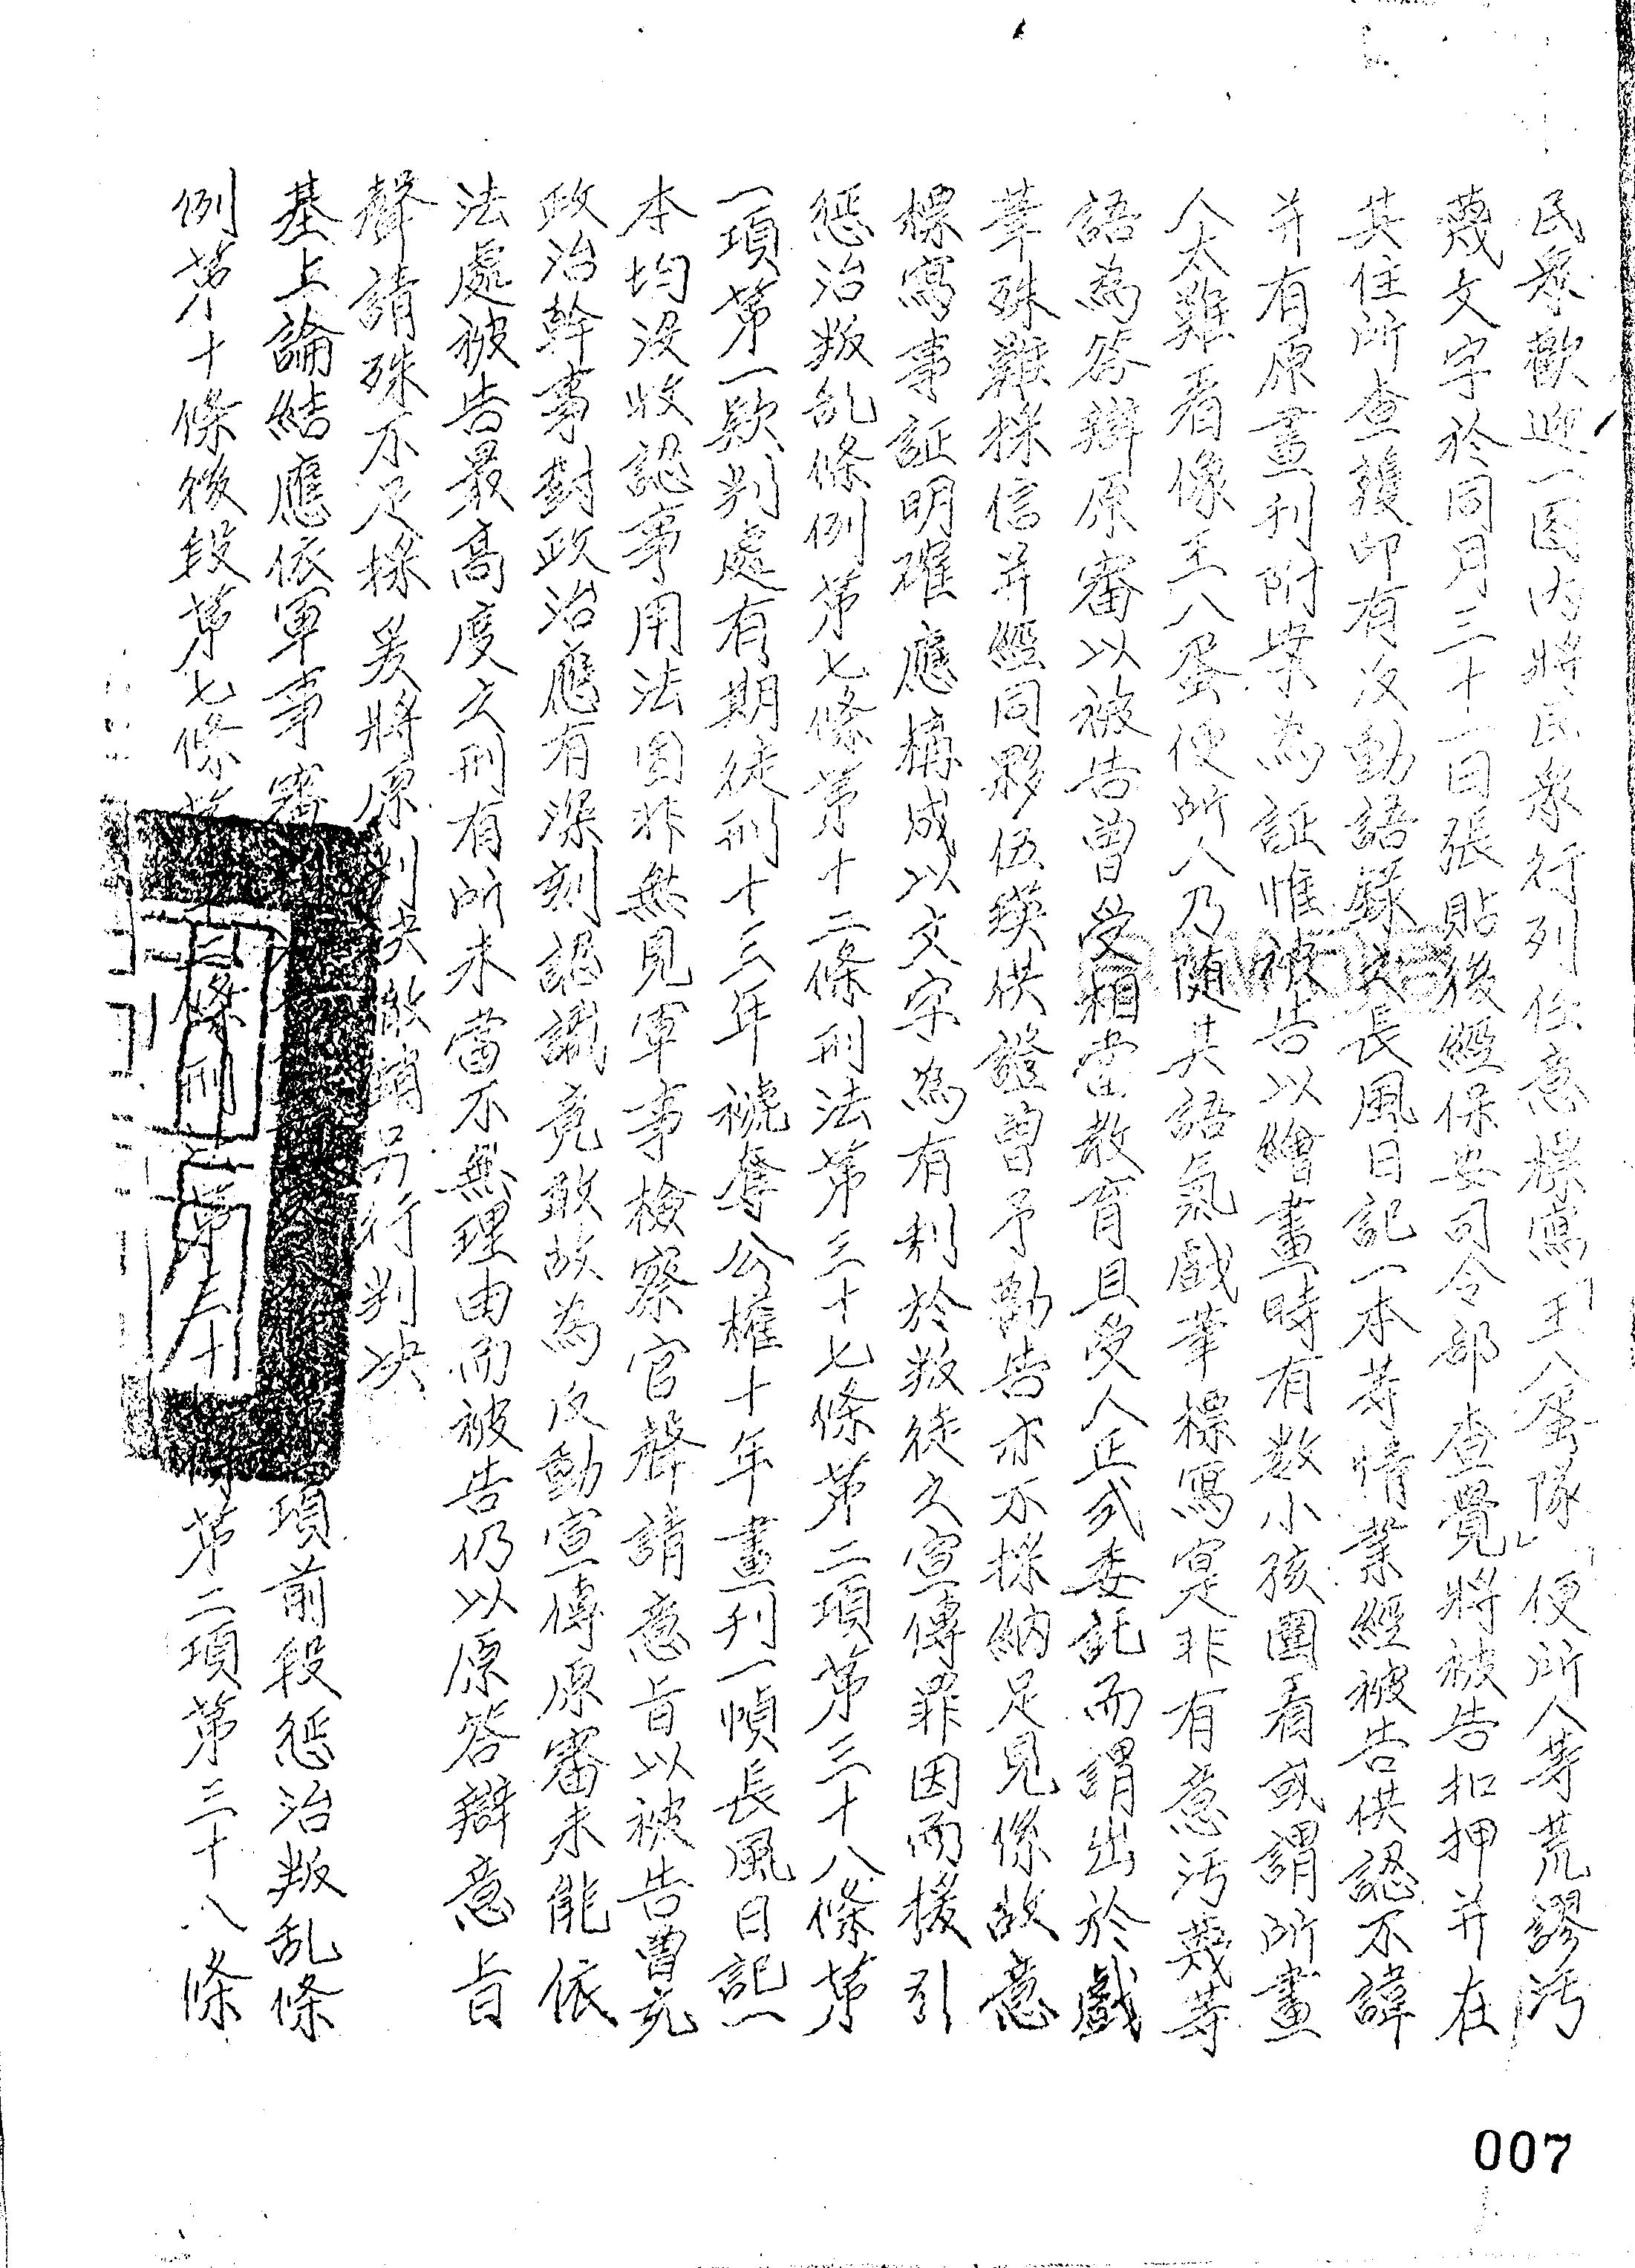 民眾歡迎一圖內將民眾行列任意標寫「王八蛋隊」便所人等荒謬污
蔑文字於同月三十一日張貼後經保安司令部查覺將被告扣押并在
其住所查獲印有反動語錄之長風日記一本等情業經被告供認不諱
并有原畫刊附案為証惟被告以繪畫時有數小孩圍看或謂所畫
人太難看像王八蛋便所人乃隨其語氣戲筆標寫寔非有意污蔑等
語為答辯原審以被告曾受相當教育且受人正式委託而謂出於戲
筆殊難採信并經同夥伍瑛供證曾予勸告亦不採納足見係故意
標寫事証明確應構成以文字為有利於叛徒之宣傳罪因而援引
惩治叛乱條例第七條第十二條刑法第三十七條第二項第三十八條第
一項第一款判處有期徒刑十三年褫奪公權十年畫刊一幀長風日記一
本均沒收認事用法固非無見軍事檢察官聲請意旨以被告曾充
政治幹事對政治應有深刻認識竟敢故為反動宣傳原審未能依
法處被告最高度之刑有所未當不無理由而被告仍以原答辯意旨
聲請殊不足採爰將原判決撤銷另行判决
基上論結應依軍事審 項前段惩治叛乱條
例第十條後段第七條第十二條刑 第三十 條第二項第三十八條
007